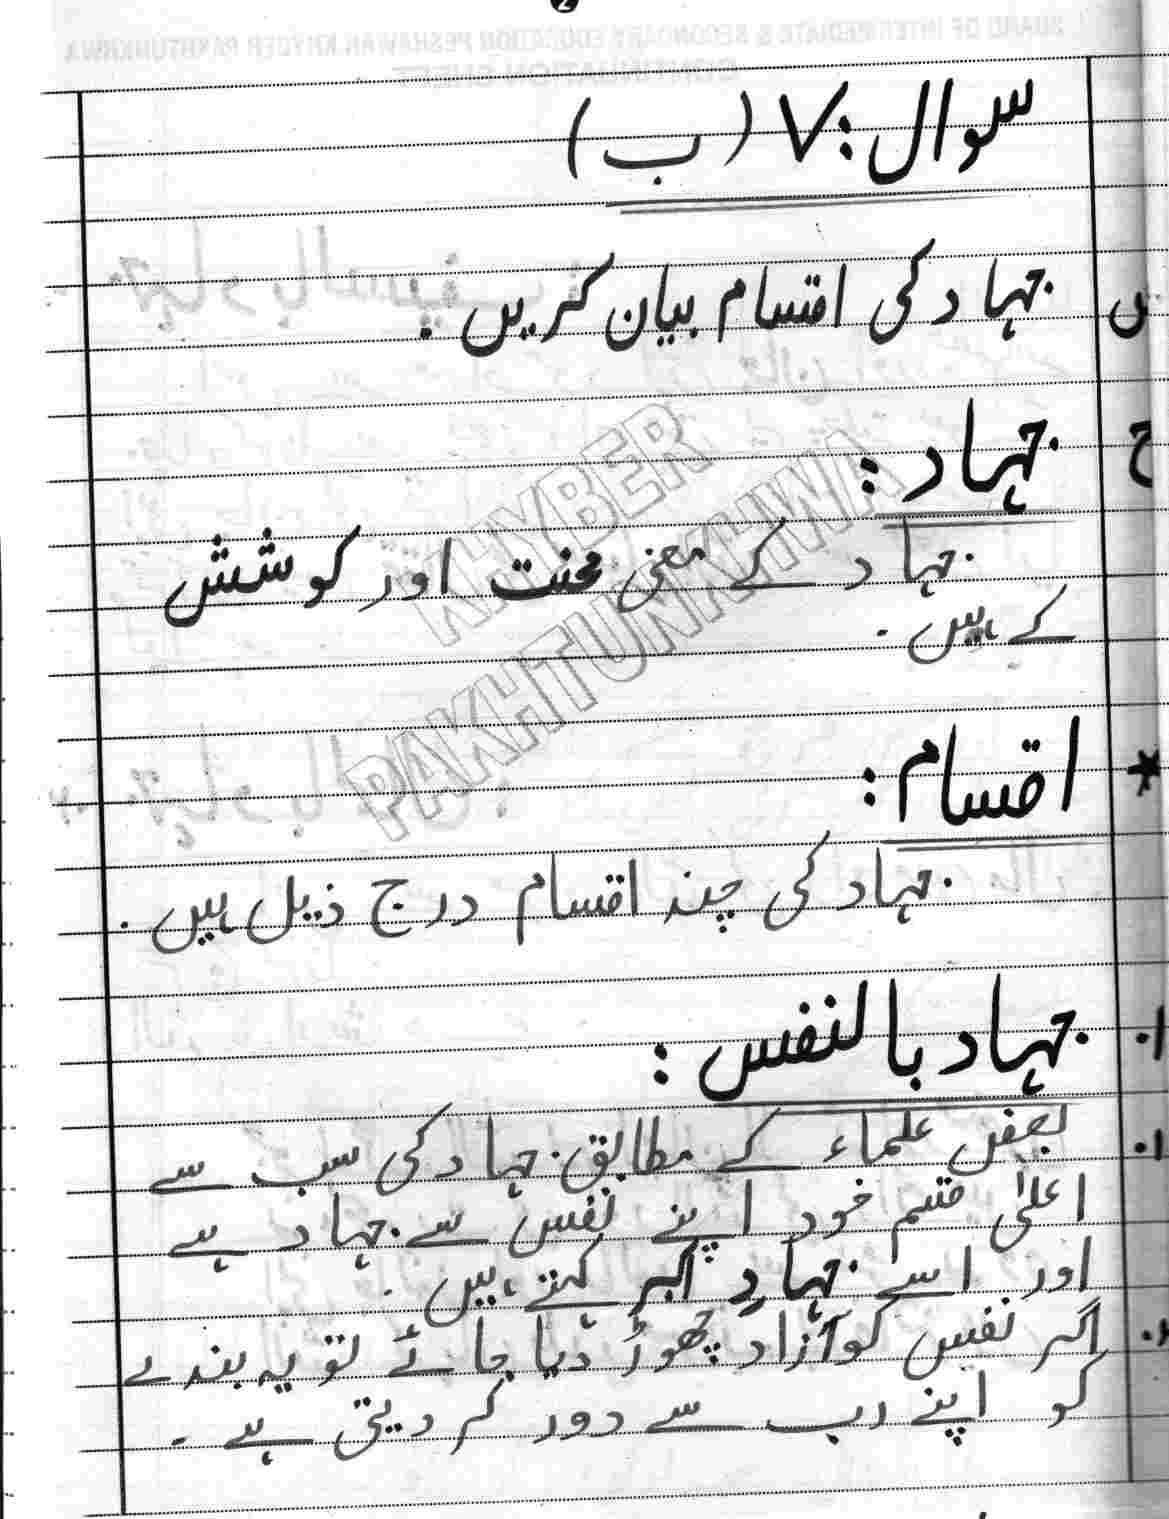 2
سوال: ۷ (ب)
س جہاد کی اقسام بیان کریں.
ج جہاد:
جہاد کے معنی محنت اور کوشش
کے ہیں.
KHYBER
PAKHTUNKHWA
★ اقسام:
جہاد کی چند اقسام درج ذیل ہیں.
۱. جہاد بالنفس:
۱. بعض علماء کے مطابق جہاد کی سب سے
اعلیٰ قسم خود اپنے نفس سے جہاد ہے
اور اسے جہادِ اکبر کہتے ہیں.
اگر نفس کو آزاد چھوڑ دیا جائے تو یہ بندے
کو اپنے رب سے دور کر دیتی ہے۔